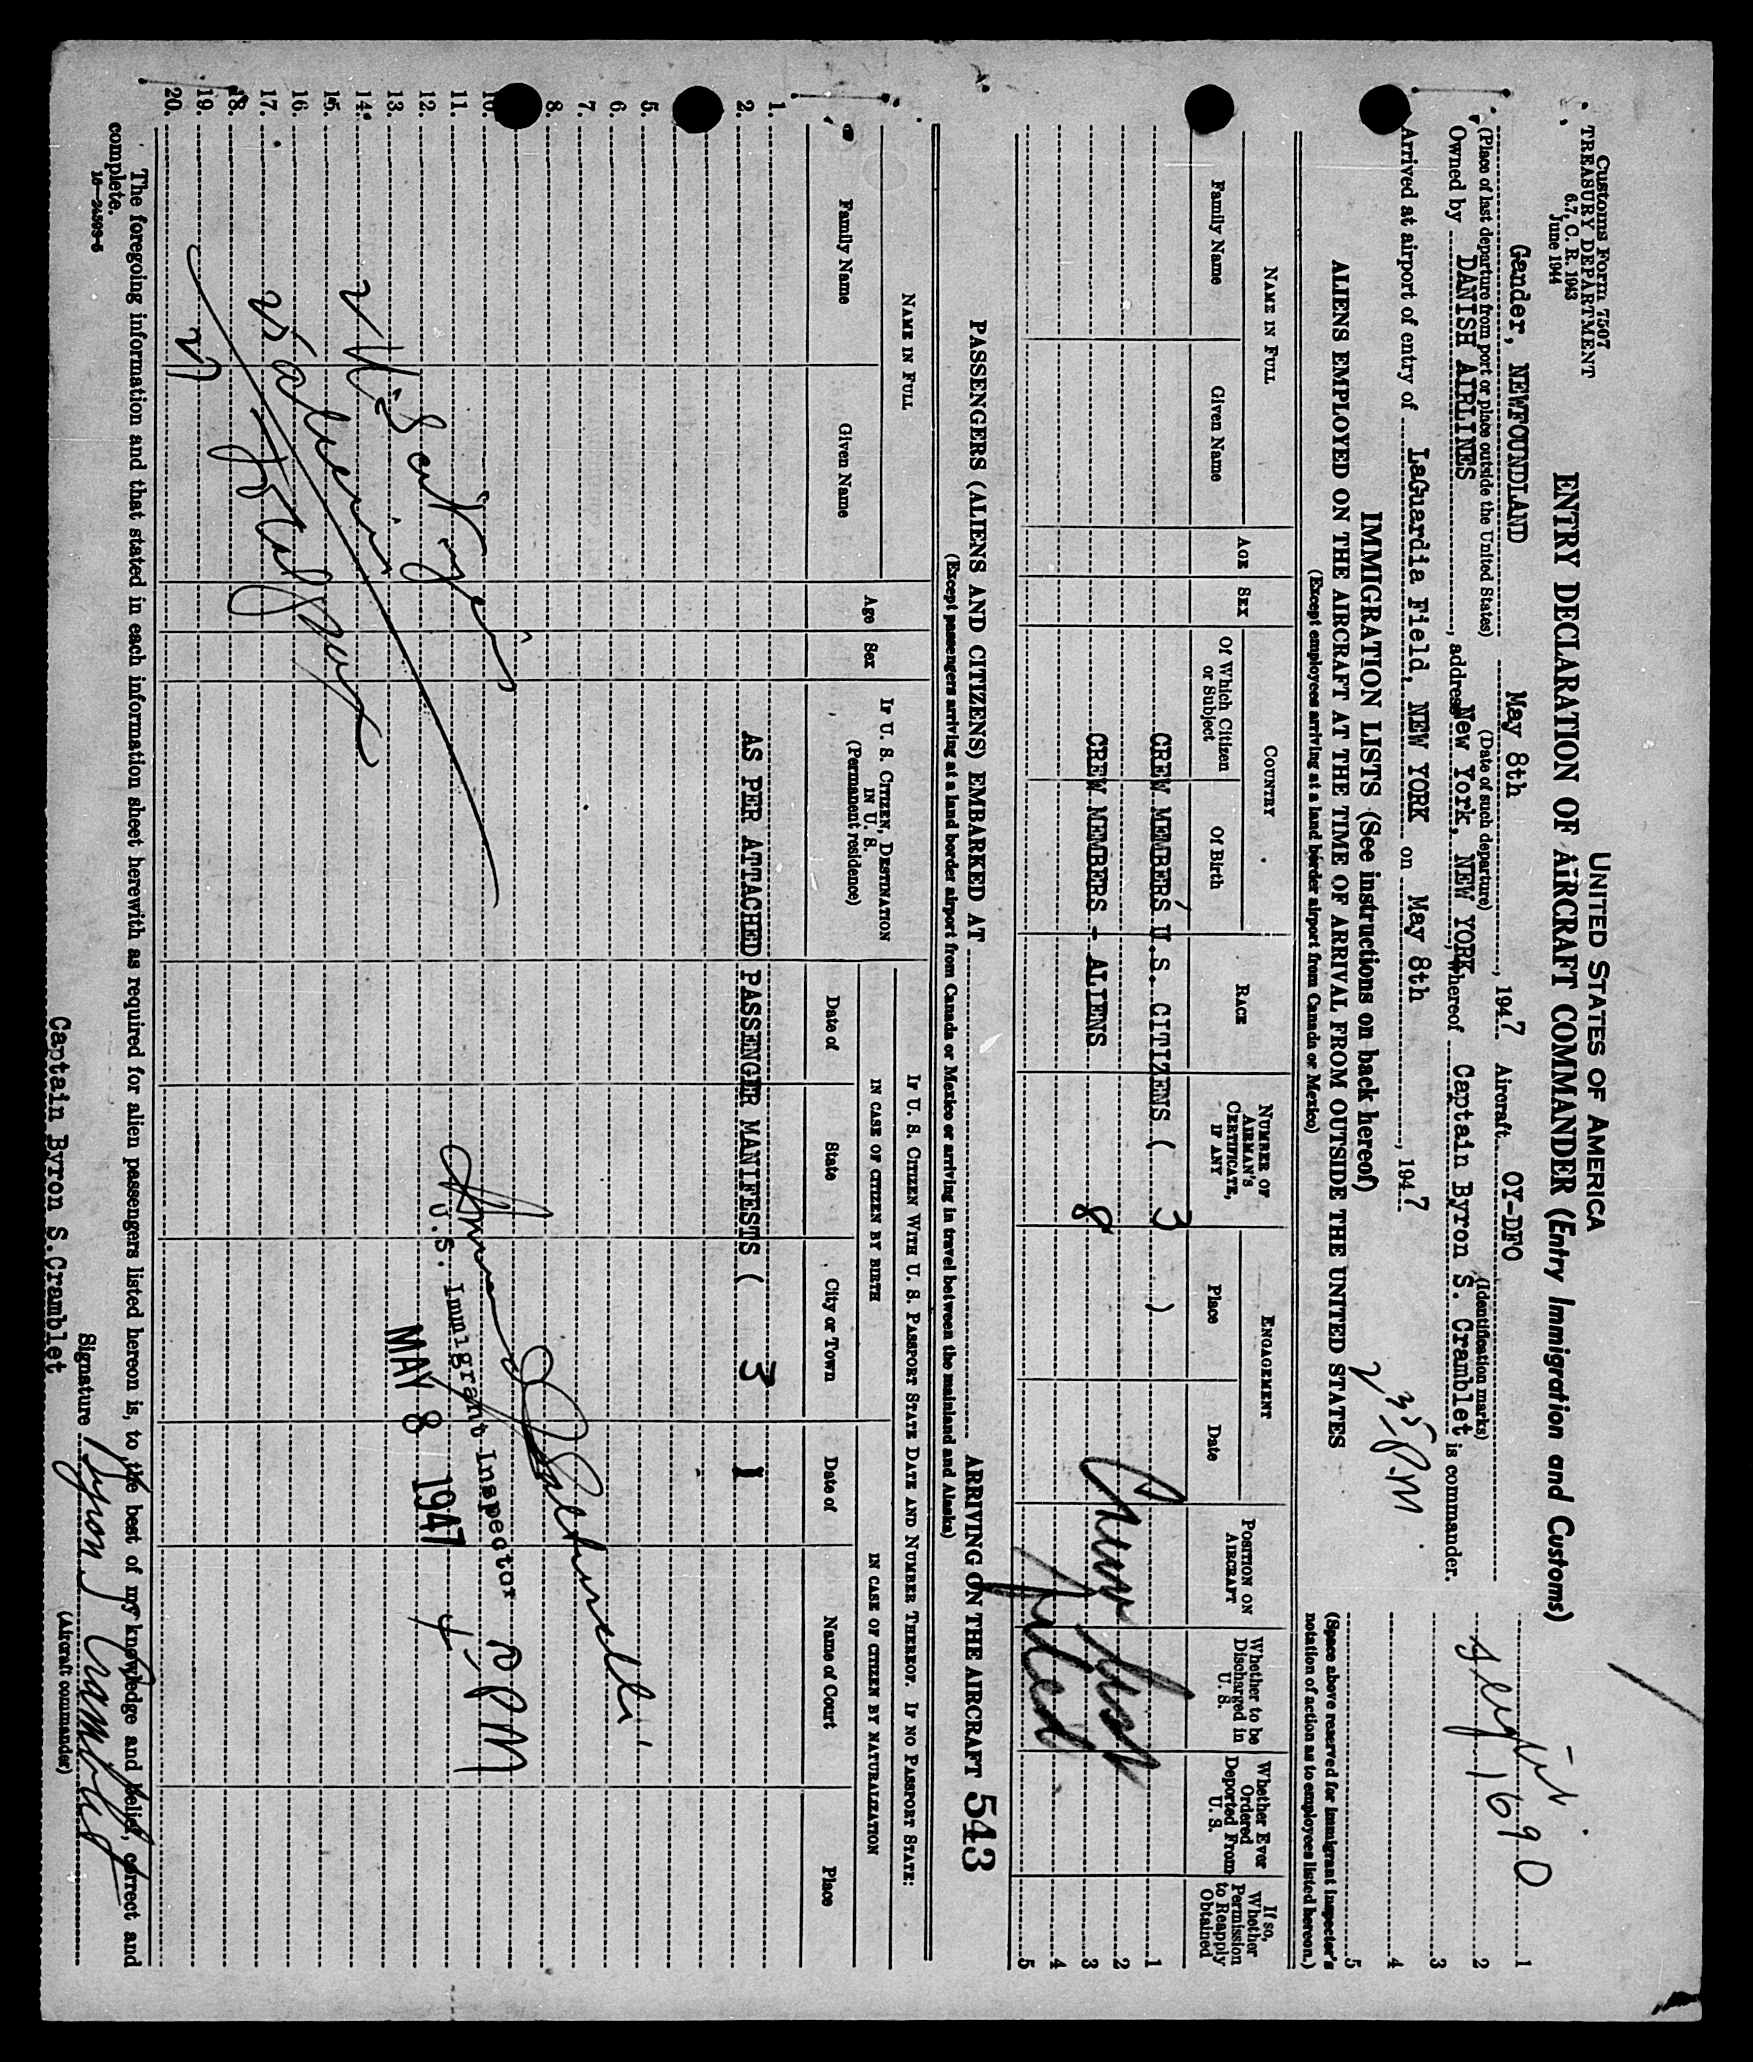 Customs Form 7507
TREASURY DEPARTMENT
6.7, C. R. 1943
June 1944
UNITED STATES OF AMERICA
ENTRY DECLARATION OF AIRCRAFT COMMANDER (Entry Immigration and Customs)
Gander, NEWFOUNDLAND May 8th, 1947 Aircraft OY-DFO
(Place of last departure from port or place outside the United States) (Date of such departure) (Identification marks)
Owned by DANISH AIRLINES, address New York, NEW YORK, whereof Captain Byron S. Cramblet is commander.
Arrived at airport of entry of LaGuardia Field, NEW YORK on May 8th, 1947
2 35 P.M
1690
1
2
3
4
5
(Space above reserved for immigrant inspector's notation of action as to employees listed hereon.)
IMMIGRATION LISTS (See instructions on back hereof)
ALIENS EMPLOYED ON THE AIRCRAFT AT THE TIME OF ARRIVAL FROM OUTSIDE THE UNITED STATES
(Except employees arriving at a land border airport from Canada or Mexico)
NAME IN FULL
Family Name
Given Name
AGE
SEX
COUNTRY
Of Which Citizen or Subject
Of Birth
RACE
NUMBER OF AIRMAN'S CERTIFICATE, IF ANY
ENGAGEMENT
Place
Date
POSITION ON AIRCRAFT
Whether to be Discharged in U. S.
Whether Ever Ordered Deported From U. S.
If so, Whether Permission to Reapply Obtained
CREW MEMBERS U.S. CITIZENS ( 3 )
CREW MEMBERS - ALIENS 8
Crew list
filed
1
2
3
4
5
PASSENGERS (ALIENS AND CITIZENS) EMBARKED AT ARRIVING ON THE AIRCRAFT 543
(Except passengers arriving at a land border airport from Canada or Mexico or arriving in travel between the mainland and Alaska)
NAME IN FULL
Family Name
Given Name
Age
Sex
IF U. S. CITIZEN, DESTINATION IN U. S.
(Permanent residence)
IF U. S. CITIZEN WITH U. S. PASSPORT STATE DATE AND NUMBER THEREOF. IF NO PASSPORT STATE:
IN CASE OF CITIZEN BY BIRTH
Date of
State
City or Town
IN CASE OF CITIZEN BY NATURALIZATION
Date of
Name of Court
Place
1.
2. AS PER ATTACHED PASSENGER MANIFESTS ( 3 1
5.
6.
7.
8.
10.
11.
12.
13.
14.
15.
16.
17.
18.
19.
20.
U.S. Immigrant Inspector
MAY 8 1947
PM
The foregoing information and that stated in each information sheet herewith as required for alien passengers listed hereon is, to the best of my knowledge and belief, correct and
complete.
16—24509-5
Signature Byron S Cramblet
(Aircraft commander)
Captain Byron S.Cramblet